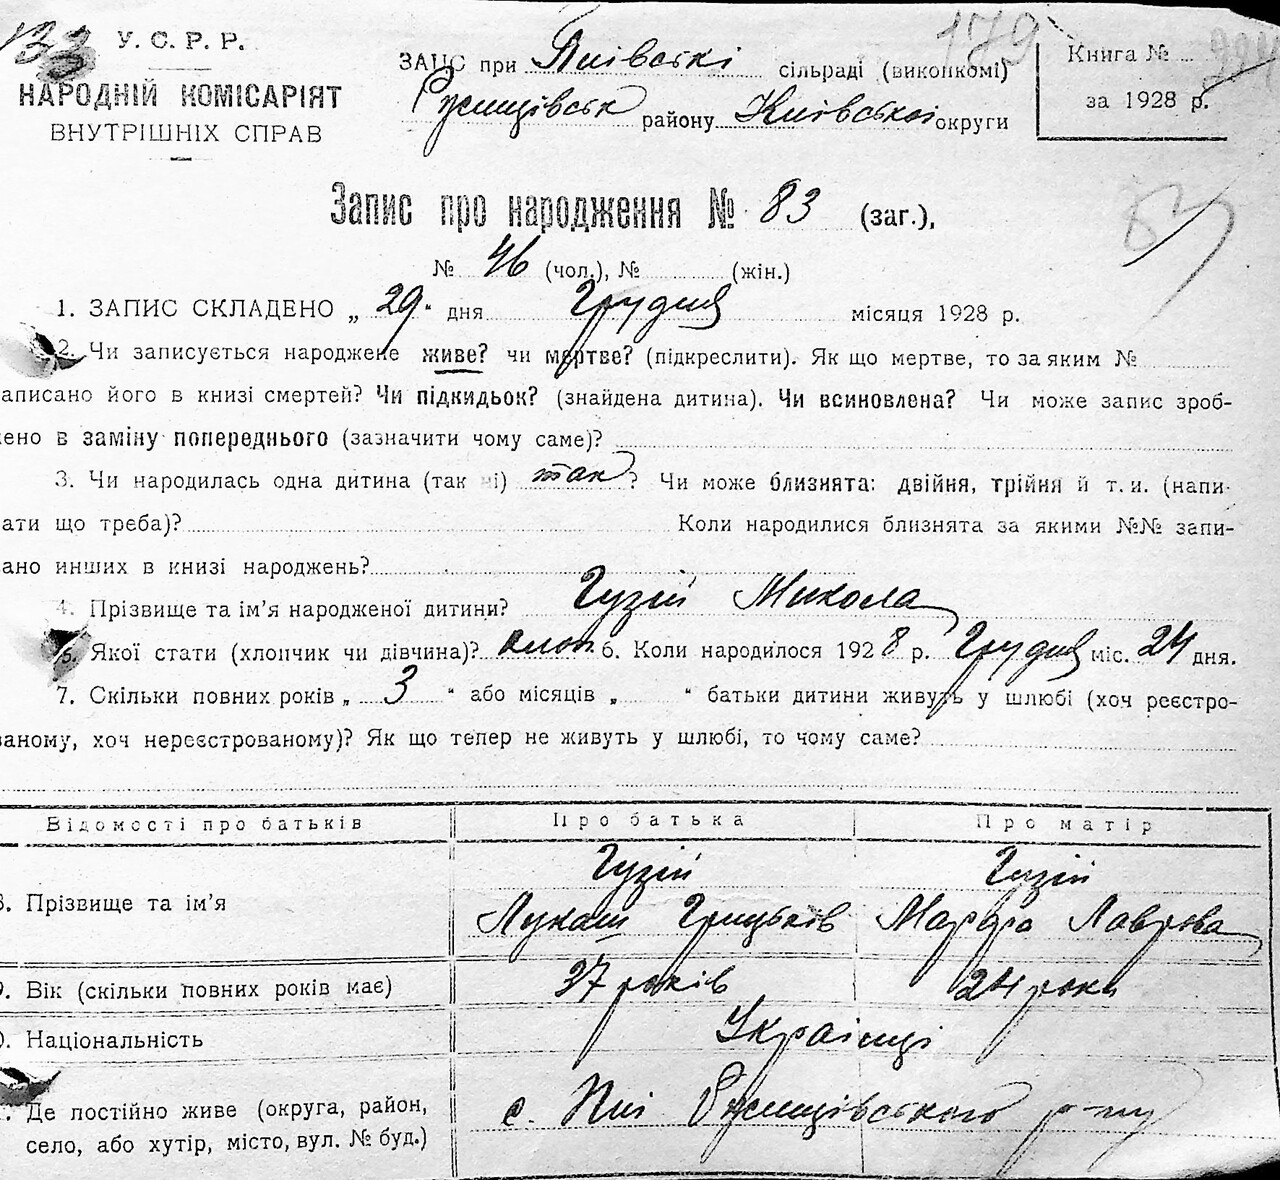 133
179
У. С. Р. Р.
НАРОДНІЙ КОМІСАРІЯТ
ВНУТРІШНІХ СПРАВ
ЗАГС при Пиівській сільраді (виконкомі)
Ржищівськ району Київської округи
Книга №
за 1928 р.
Запис про народження № 83 (заг.),
83
№ 46 (чол.), № (жін.)
1. ЗАПИС СКЛАДЕНО „ 29 " дня Грудня місяця 1928 р.
2. Чи записується народжене живе? чи мертве? (підкреслити). Як що мертве, то за яким №
аписано його в книзі смертей? Чи підкидьок? (знайдена дитина). Чи всиновлена? Чи може запис зроб-
ено в заміну попереднього (зазначити чому саме)?
3. Чи народилась одна дитина (так ні) так? Чи може близнята: двійня, трійня й т. и. (напи-
ати що треба)? Коли народилися близнята за якими №№ запи-
ано инших в книзі народжень?
4. Прізвище та ім'я народженої дитини? Гузій Микола
5. Якої стати (хлопчик чи дівчина)? хлоп. 6. Коли народилося 1928 р. Грудня міс. 24 дня.
7. Скільки повних років „ 3 " або місяців „ " батьки дитини живуть у шлюбі (хоч реєстро-
ваному, хоч нереєстрованому)? Як що тепер не живуть у шлюбі, то чому саме?
Відомості про батьків Про батька Про матір
8. Прізвище та ім'я Гузій Гузій
Лукаш Грицьків Марфа Лаврова
9. Вік (скільки повних років має) 27 років 24 роки
0. Національність Українці
Де постійно живе (округа, район, с. Пиї Ржищівського р-ну
село, або хутір, місто, вул. № буд.)